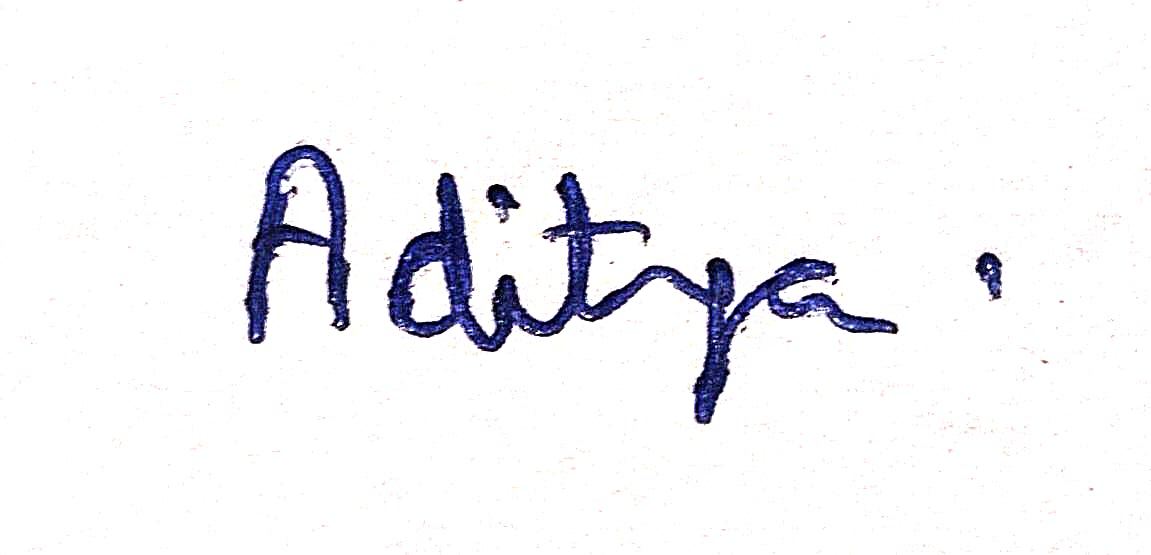 Aditya .